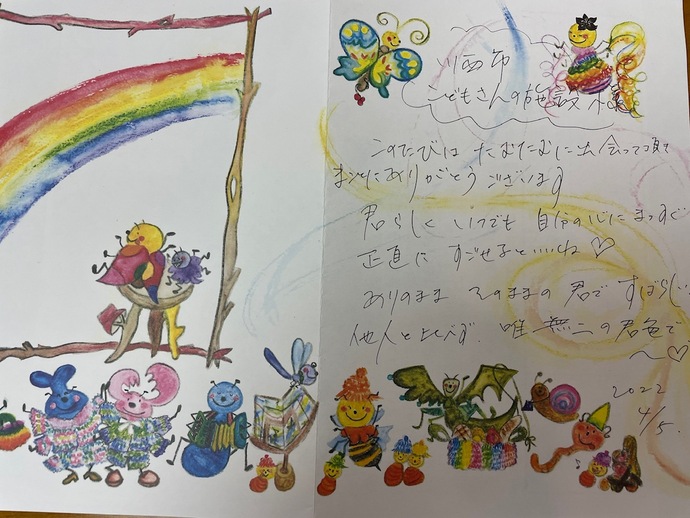 川西市
こどもさんの施設 様
このたびは たむたむに出会って頂き
まことにありがとうございます
君らしく いつでも 自分の心にまっすぐ
正直に すごせると いいね♡
ありのまま そのままの 君で すばらしい
他人と比べず 唯一無二の君色で
〜♡
2022
4/5.